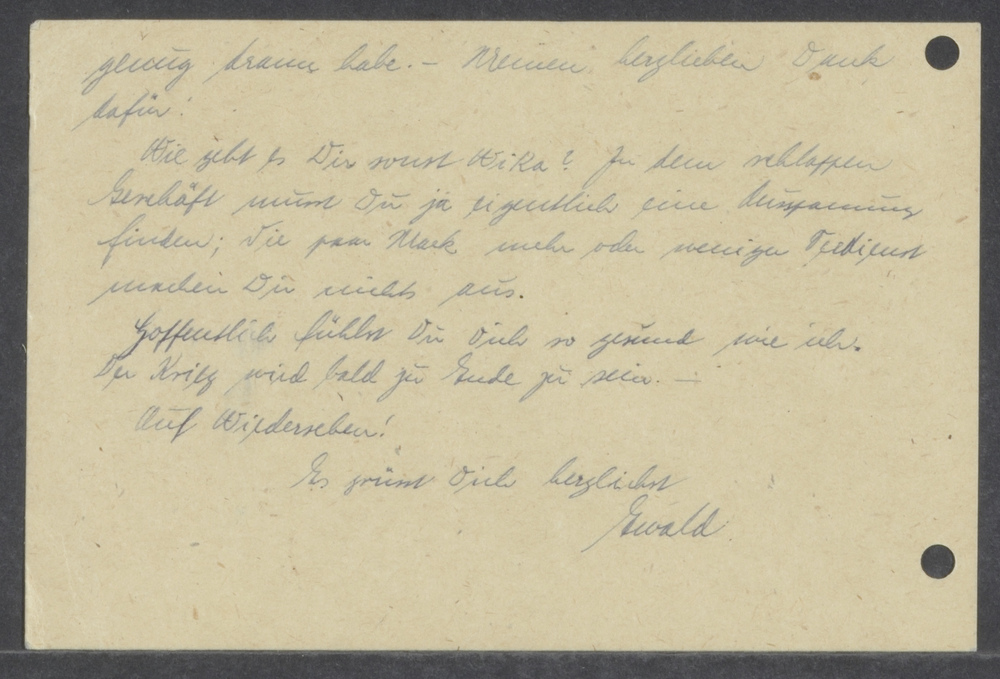 genug daran habe. – Meinen herzlieben Dank
dafür.
Wie geht es Dir sonst Wika? In dem schlappen
Geschäft musst Du ja eigentlich eine Ausspannung
finden; die paar Mark mehr oder weniger Verdienst
machen Dir nichts aus.
Hoffentlich fühlst Du Dich so gesund wie ich.
Der Krieg wird bald zu Ende zu sein. –
Auf Wiedersehen!
Es grüsst Dich herzlichst
Ewald.